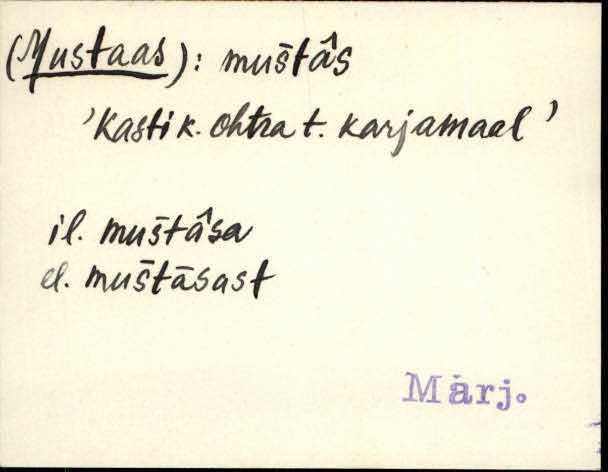 (Mustaas): mus̄tâs
'Kasti k. Ohtra t. karjamaal'
il. mus̄tâsa
el. mus̄tāsast
Märj.